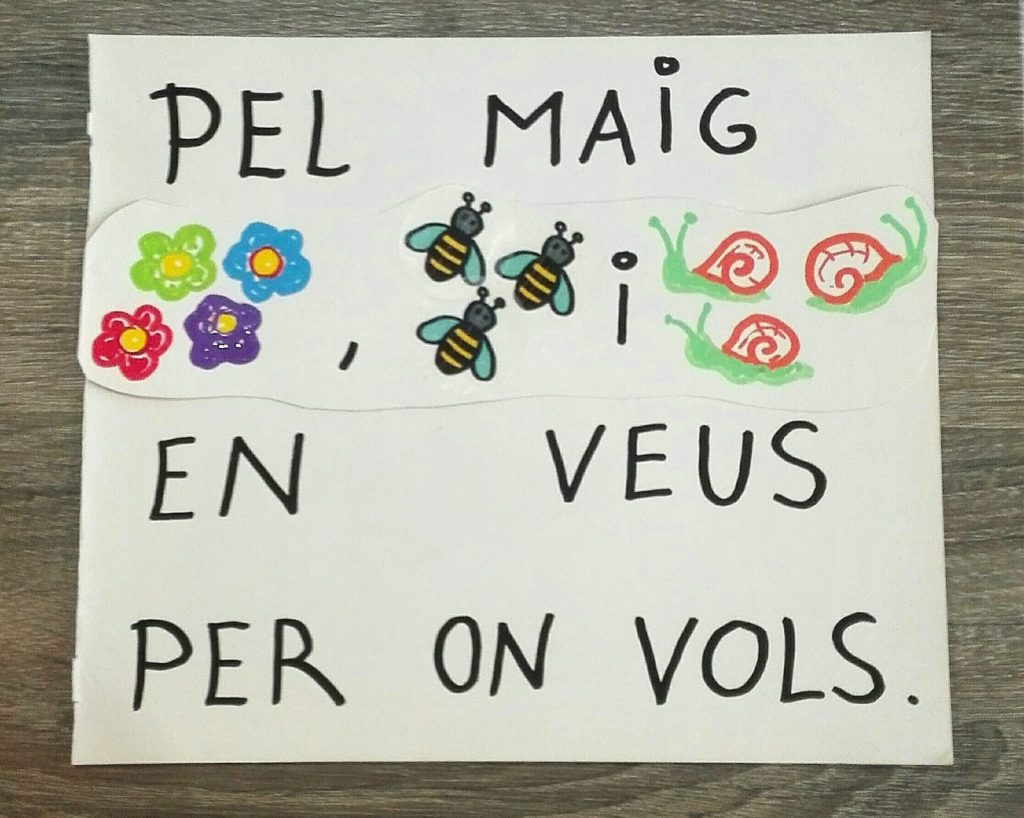 PEL MAiG
, i
EN VEUS
PER ON VOLS.